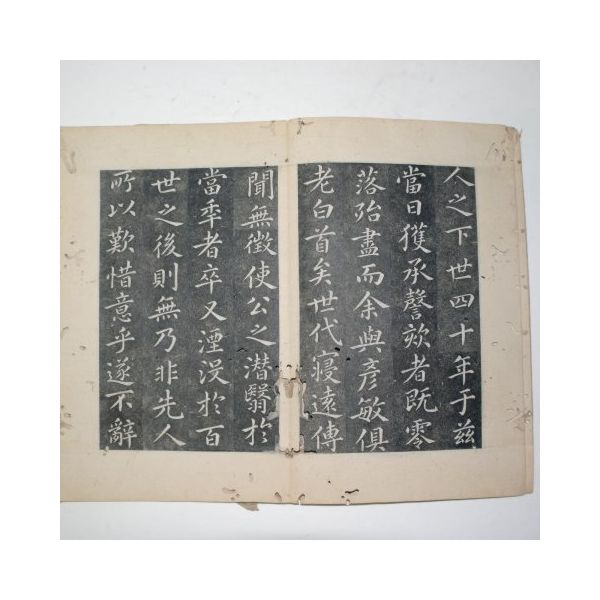 人之下世四十年于茲
當日獲承謦欬者既零
落殆盡而余與彥敏俱
老白首矣世代寖遠傳
聞無徵使公之潛翳於
當年者卒又湮沒於百
世之後則無乃非先人
所以歎惜意乎遂不辭